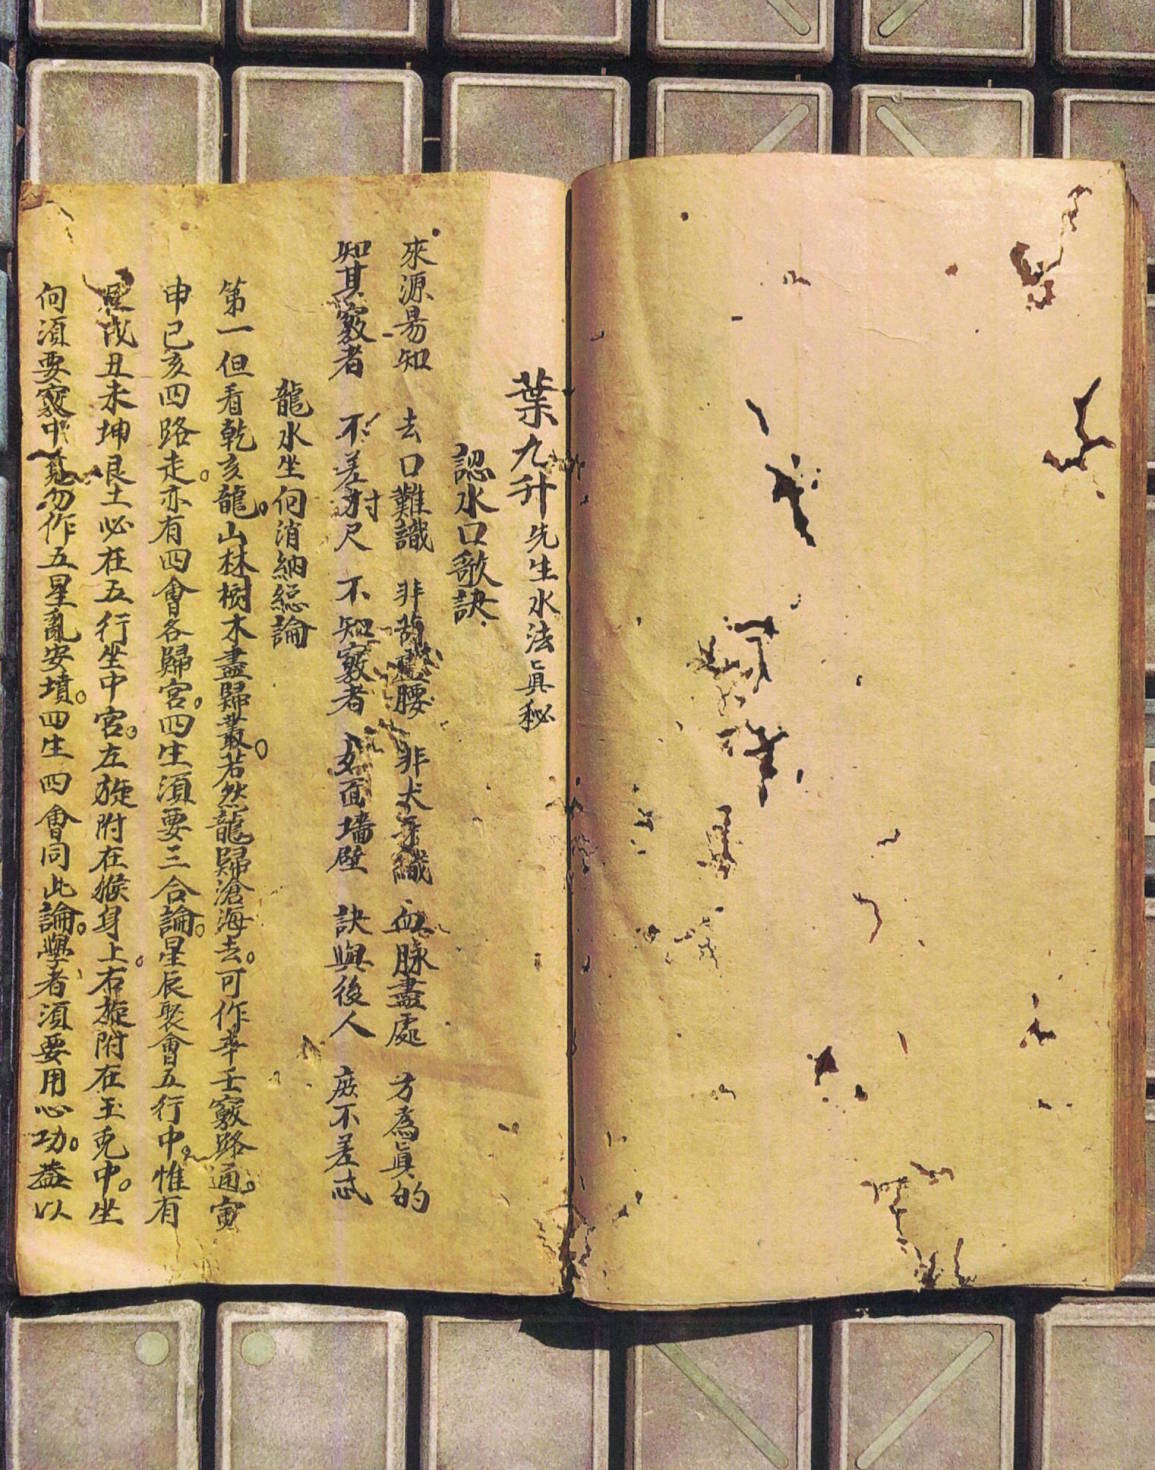 葉九升先生水法眞秘
認水口歌訣
來源易知 去口難識 非 腰 非犬 織 血脉盡處 方為眞的
知其竅者 不差 尺 不知竅者 如面墻壁 訣與後人 庶不差忒
龍水坐向消納總論
第一但看乾亥龍。山林樹木盡歸叢。若然龍歸滄海去。可作辛壬竅路通。寅
申巳亥四路走。亦有四會各歸宮。四生須要三合論。星辰聚會五行中。惟有
戌丑未坤艮土必在五行坐中宮。左旋附在猴身上。右旋附在玉兎中。坐
向須要竅中覓勿作五星亂安墳。四生四會同此論。學者須要用心功。益以